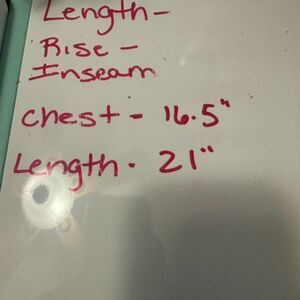 Length -
Rise -
Inseam
Chest - 16.5"
Length - 21"